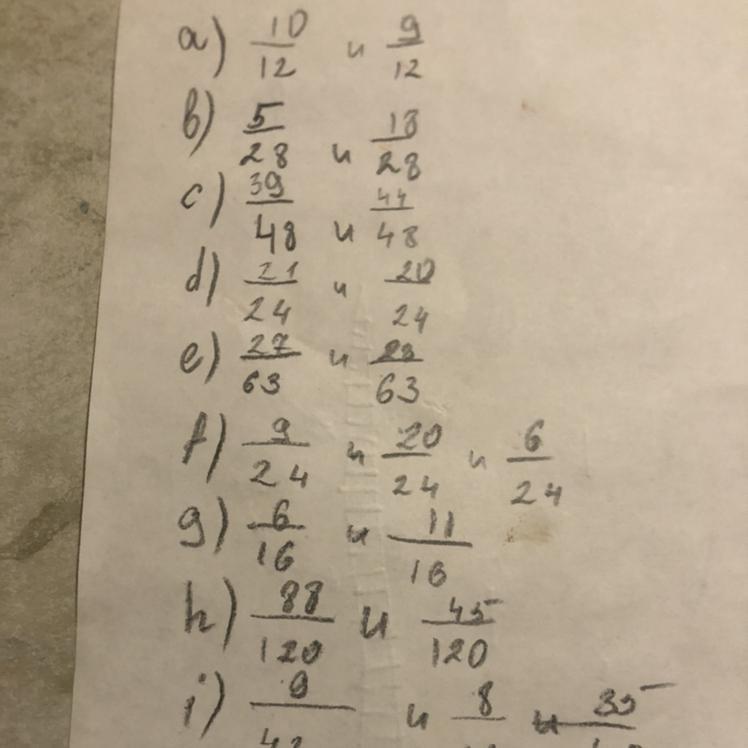 a) 10/12 и 9/12
b) 5/28 и 18/28
c) 39/48 и 44/48
d) 21/24 и 20/24
e) 27/63 и 28/63
f) 9/24 и 20/24 и 6/24
g) 6/16 и 11/16
h) 88/120 и 45/120
i) 9/42 и 8 и 35